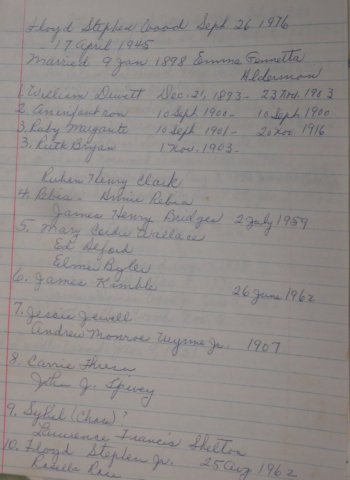 Floyd Stephen Wood Sept. 26 1976
17 April 1945
Married 9 Jan 1898 Emma
Alderman
1. William Dewitt Dec. 21, 1893- 23 Nov. 1903
2. An infant son 10 Sept 1900- 10 Sept 1900
3. Ruby Margarite 10 Sept 1901- 20 Nov. 1916
3. Ruth Bryan 1 Nov. 1903-
Ruben Henry Clark
4. Rebia- Annie Rebia
James Henry Bridges 2 July 1959
5. Mary Wallace
Ed
Elmer Byler
6. James Kimble 26 June 1962
7. Jessie Jewell
Andrew Monroe Wynne Jr. 1907
8. Carrie
John J. Spivey
9. Sybil (Chas)?
Lawrence Francis Shelton
10. Floyd Stephen Jr. 25 Aug 1962
Rosella Rose